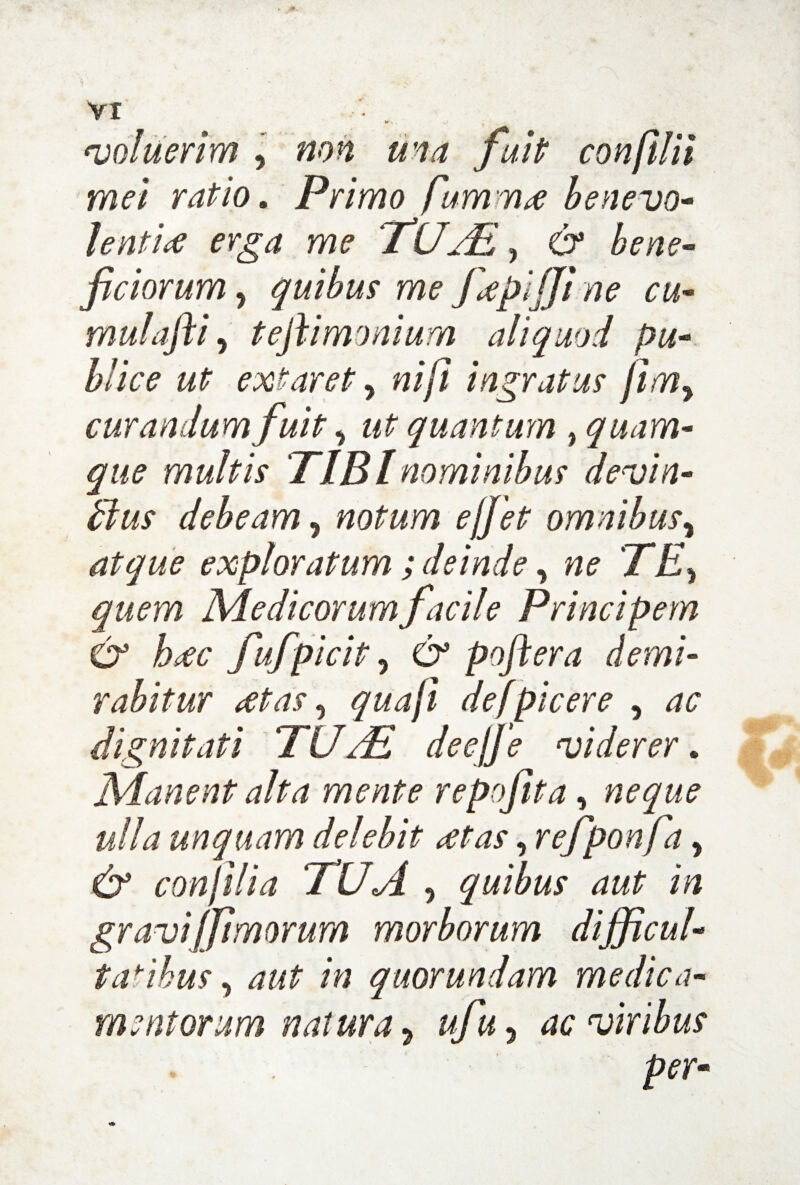 VI
voluerim , non una fuit conſilii
mei ratio. Primo ſummæ benevo-
lentiæ erga me TUÆ, & bene-
ficiorum, quibus me ſæpiſſine cu-
mulaſti, teſtimonium aliquod pu-
blice ut extaret, niſi ingratus ſim,
curandum fuit, ut quantum , quam-
que multis TIBI nominibus devin-
ctus debeam, notum eſſet omnibus,
atque exploratum ; deinde, ne TE,
quem Medicorum facile Principem
& hæc ſuſpicit, & poſtera demi-
rabitur ætas, quaſi deſpicere , ac
dignitati TUÆ deeſſe viderer.
Manent alta mente repoſita, neque
ulla unquam delebit ætas, reſponſa,
& conſilia TUA , quibus aut in
graviſſimorum morborum difficul-
tatibus, aut in quorundam medica-
mentorum natura, uſu, ac viribus
per-